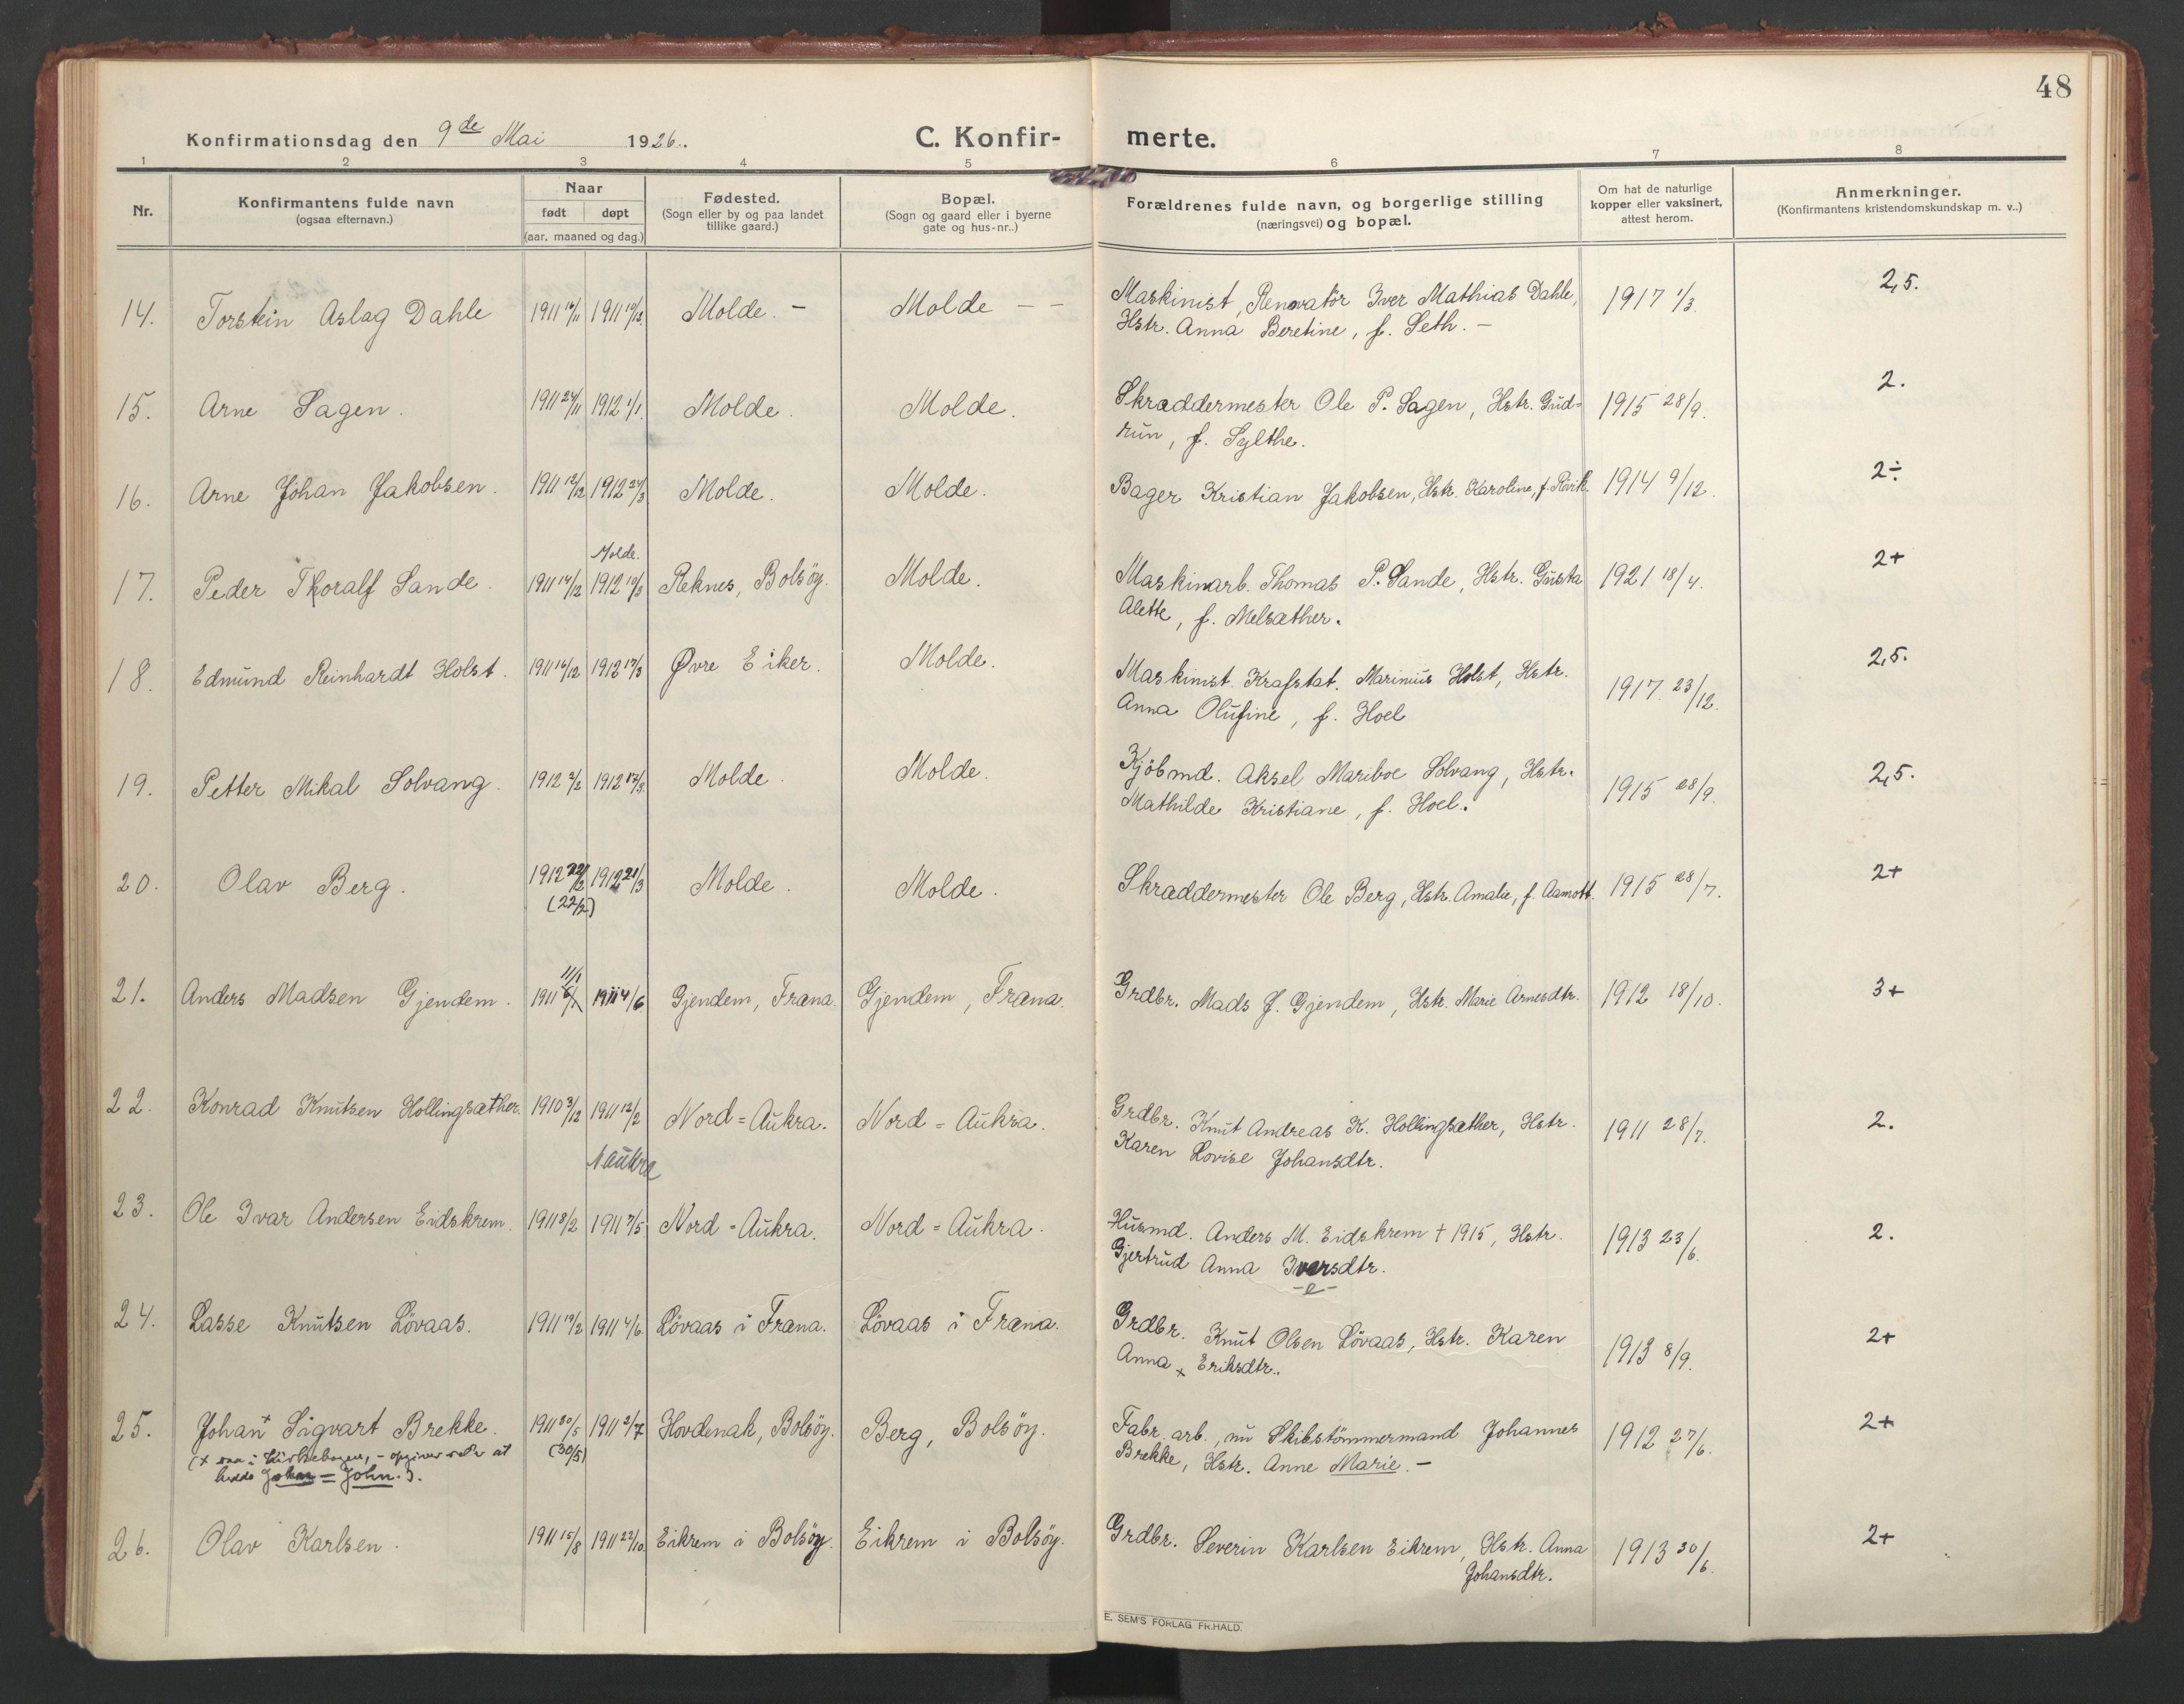 48
Konfirmationsdag den 9de Mai 1926.
C. Konfir- merte.
1 2 3 4 5 6 7 8
Nr.
Konfirmantens fulde navn
(ogsaa efternavn.)
Naar
født døpt
(aar, maaned og dag.)
Fødested.
(Sogn eller by og paa landet
tillike gaard.)
Bopæl.
(Sogn og gaard eller i byerne
gate og hus-nr..)
Forældrenes fulde navn, og borgerlige stilling
(næringsvei) og bopæl.
Om hat de naturlige
kopper eller vaksinert,
attest herom.
Anmerkninger.
(Konfirmantens kristendomskundskap m. v..)
14. Torstein Aslag Dahle 1911 1911 Molde. - Molde - - Maskinist, Renovatör Iver Mathias Dahle, 1917 1/3. 2,5.
Hstr. Anna Beretine, f. Seth. -
15. Arne Sagen. 1911 24/11 1912 1/1. Molde. Molde. Skræddermester Ole P. Sagen, Hstr. Gud= 1915 28/9. 2.
run, f. Sylthe.
16. Arne Johan Jakobsen. 1911 12/12 1912 24/3 Molde. Molde. Bager Kristian Jakobsen, Hstr. Karoline, f. 1914 9/12. 2÷
Molde.
17. Peder Thoralf Sande. 1911 14/12 1912 10/3 Reknes, Bolsöy. Molde. Maskinarb. Thomas P. Sande, Hstr. Gusta 1921 18/4. 2+
Alette, f. Melsæther.
18. Edmund Reinhardt Holst. 1911 16/12 1912 17/3 Øvre Eiker. Molde. Maskinist. Krafstat. Marinius Holst, Hstr. 1917. 23/12. 2,5.
Anna Olufine, f. Hoel
19. Petter Mikal Solvang. 1912 2/2 1912 17/3 Molde. Molde. Kjöbmd. Aksel Mariboe Solvang, Hstr. 1915 28/9. 2,5.
Mathilde Kristiane, f. Hoel.
20. Olav Berg. 1912 22/2 1912 21/3 Molde. Molde. Skræddermester Ole Berg, Hstr. Amalie, f. Aamott. 1915 28/7. 2+
(22/2)
11/1
21. Anders Madsen Gjendem. 1911 1911 4/6 Gjendem, Fræna. Gjendem, Fræna. Grdbr. Mads J. Gjendem, Hstr. Marie Arnesdtr. 1912 18/10. 3+
22. Konrad Knutsen Hollingsæther. 1910 3/12 1911 12/2 Nord=Aukra. Nord=Aukra. Grdbr. Knut Andreas K. Hollingsæther, Hstr. 1911 28/7. 2.
Karen Lovise Johansdtr.
N Aukra
23. Ole Ivar Andersen Eidskrem. 1911 8/2 1911 7/5 Nord=Aukra. Nord=Aukra. Husmd. Anders M. Eidskrem † 1915, Hstr. 1913 23/6. 2.
Gjertrud Anna Iversdtr.
-e-
24. Lasse Knutsen Lövaas. 1911 19/2 1911 4/6. Lövaas i Fræna. Lövaas i Fræna. Grdbr. Knut Olsen Lövaas, Hstr. Karen 1913 8/9. 2+
Anna × Eriksdtr.
25. Johan+ Sigvart Brekke. 1911 30/5 1911 2/7 Hovdenak, Bolsöy. Berg, Bolsöy. Fabr. arb., nu Skibstömmermand Johannes 1912 27/6. 2+
(+ saa i kirkebogen, - opgiver selv at (30/5) Brekke, Hstr. Anne Marie. -
hedde Johan = John.).
26. Olav Karlsen. 1911 15/8 1911 22/10. Eikrem i Bolsöy. Eikrem i Bolsöy. Grdbr. Severin Karlsen Eikrem, Hstr. Anna 1913 30/6. 2+
Johansdtr.
E. SEM'S FORLAG FR.HALD.